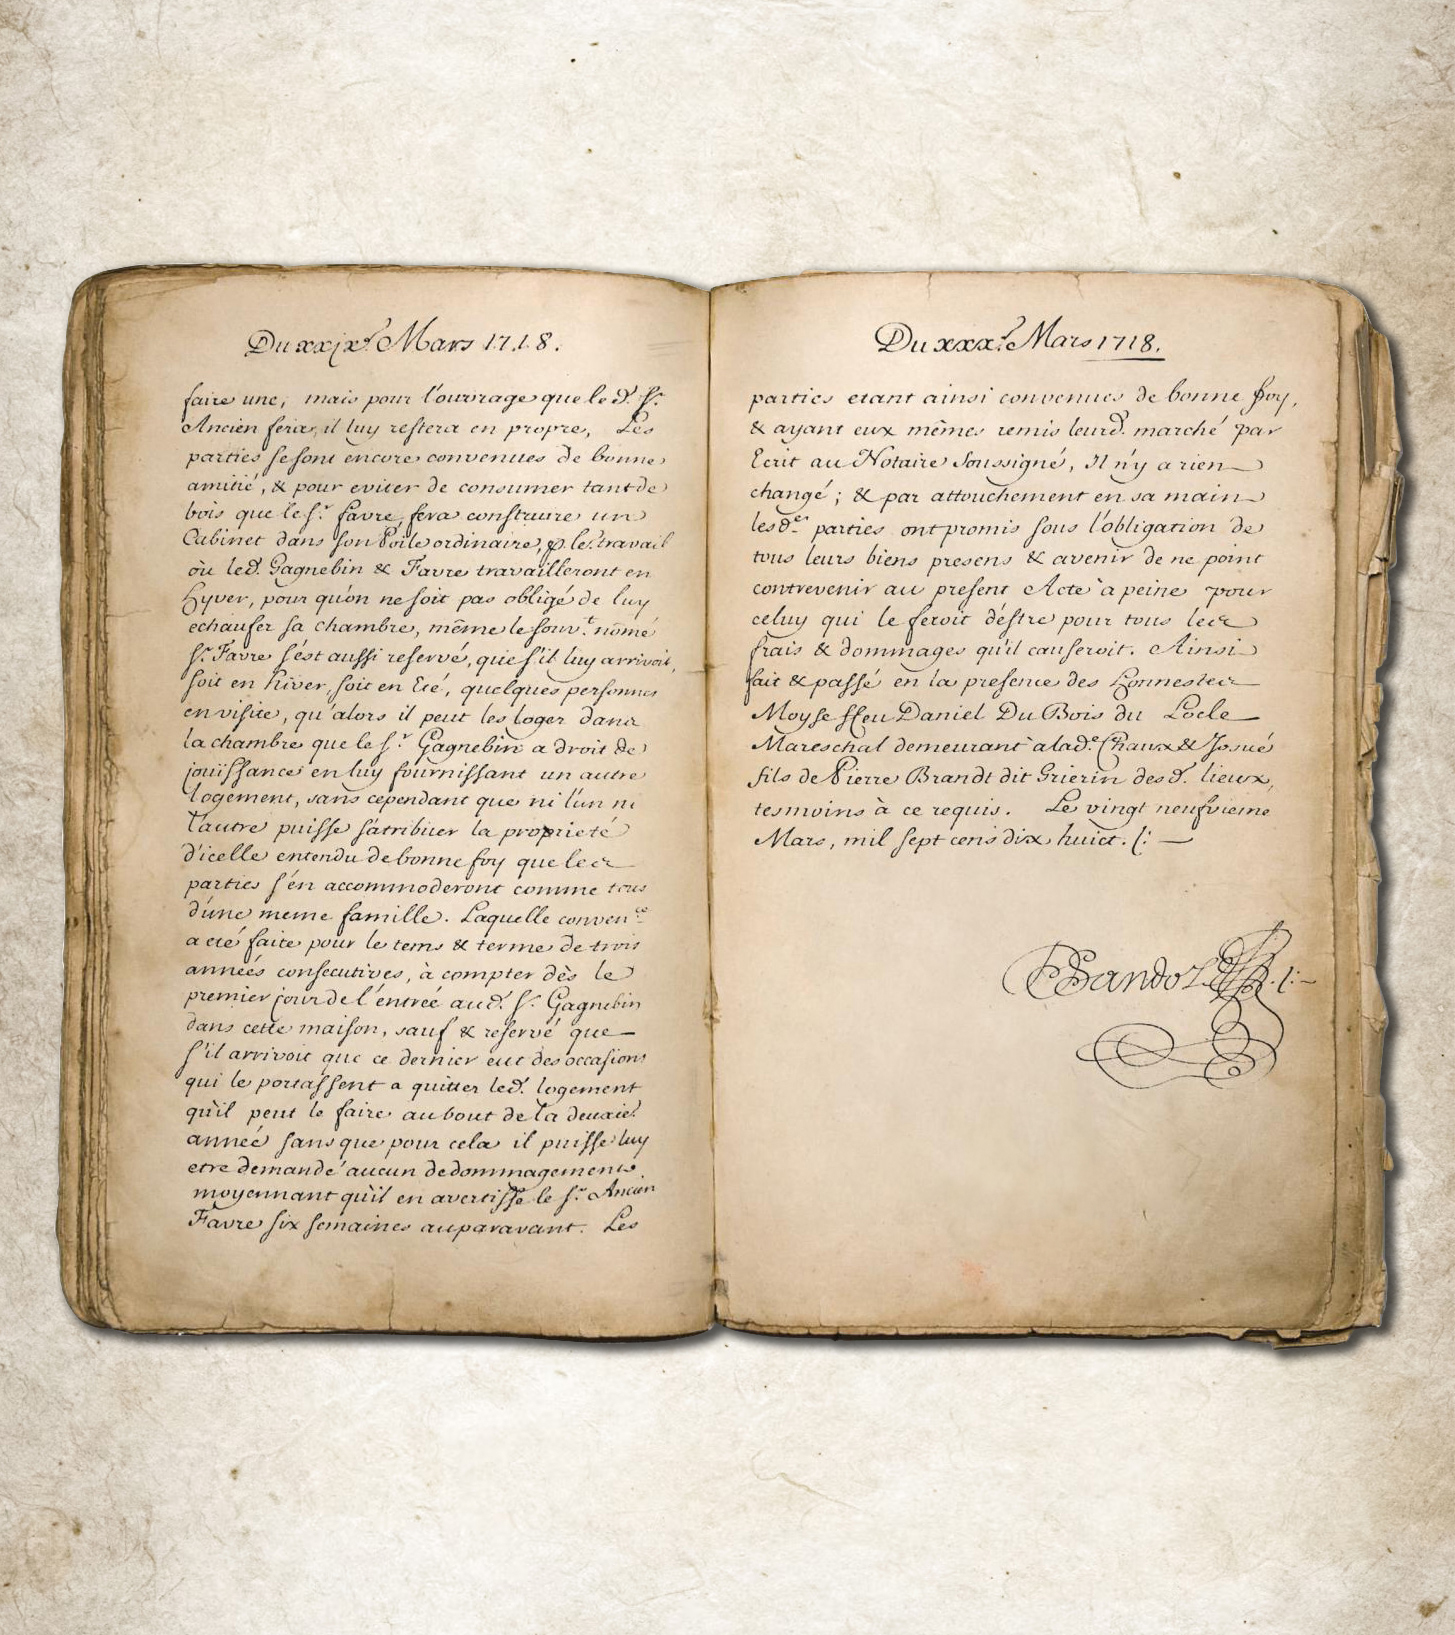 Du xxjxe. Mars 1718.
faire une, mais pour l'ouvrage que le d. Sr.
Ancien fera, il luy restera en propre, Les
parties se sont encore convenues de bonne
amitié, & pour eviter de consumer tant de
bois que le Sr. Favre, fera construire un
Cabinet dans son Poile ordinaire, p. le travail
où led. Gagnebin & Favre travailleront en
Hyver, pour qu'on ne soit pas obligé de luy
echaufer sa chambre, même le souvt. nomé
Sr. Favre s'est aussi reservé, que s'il luy arrivoit,
soit en hiver, soit en Eté, quelques personnes
en visite, qu'alors il peut les loger dans
la chambre que le Sr. Gagnebin a droit de
jouïssance en luy fournissant un autre
logement, sans cependant que ni l'un ni
l'autre puisse s'atribuer la proprieté
d'icelle entendu de bonne foy que les
parties s'en accommoderont comme tous
d'une meme famille. Laquelle convence.
a eté faite pour le tems & terme de trois
années consecutives, à compter dès le
premier jour de l'entrée aud. Sr. Gagnebin
dans cette maison, sauf & reservé que
s'il arrivoit que ce dernier eut des occasions
qui le portassent a quitter led. logement
qu'il peut le faire au bout de la deuxie.
année sans que pour cela il puisse luy
etre demandé aucun dedommagement,
moyennant qu'il en avertisse le Sr. Ancien
Favre six semaines auparavant. Les
Du xxxe. Mars 1718.
parties etant ainsi convenues de bonne foy,
& ayant eux mêmes remis leurd. marché par
Ecrit au Notaire soussigné, Il n'y a rien
changé; & par attouchement en sa main
lesdes. parties ont promis sous l'obligation de
tous leurs biens presens & avenir de ne point
contrevenir au present Acte à peine pour
celuy qui le feroit d'éstre pour tous les
frais & dommages qu'il causeroit. Ainsi
fait & passé en la presence des Honnestes
Moyse ffeu Daniel Du Bois du Locle
Mareschal demeurant à lade. Chaux & Josué
fils de Pierre Brandt dit Grierin desd. lieux,
tesmoins à ce requis. Le vingt neufvieme
Mars, mil sept cens dix huict. /:
Sandoz